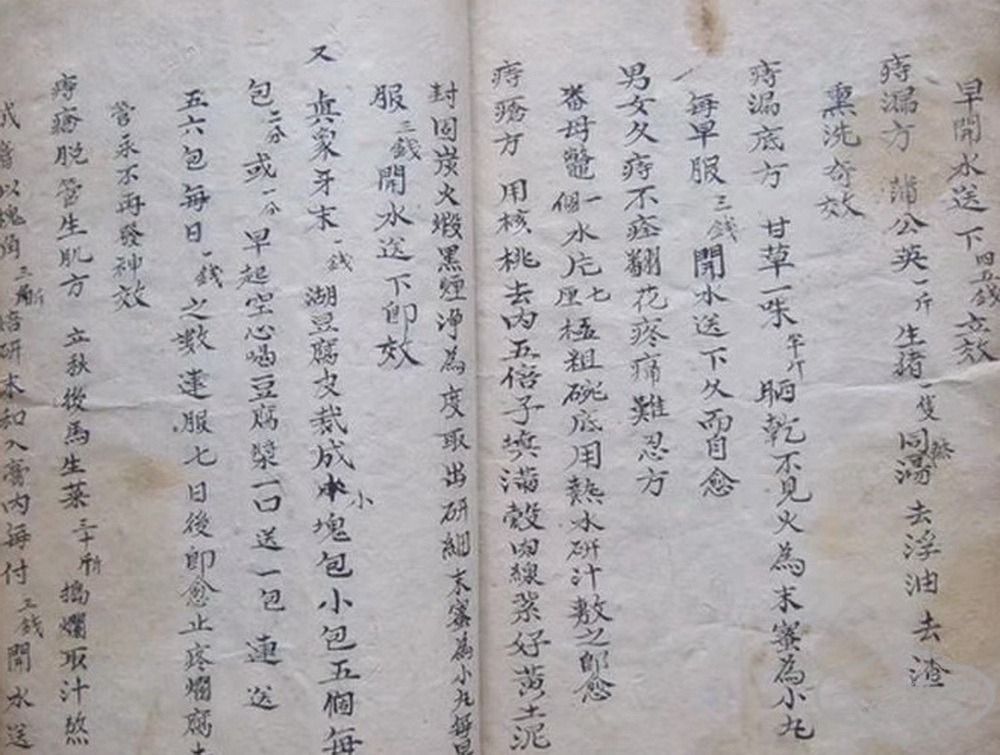 早開水送下四五錢立效
痔漏方 蒲公英一斤生猪一隻同湯去浮油去渣
熏洗奇效
痔漏底方 甘草一味半斤晒乾不見火為末蜜為小丸
每早服三錢開水送下久而自愈
男女久痔不痊翻花疼痛難忍方
蕃母鱉一個水片七厘極粗碗底用熱水研汁敷之即愈
痔瘡方 用核桃去肉五倍子填滿殼內線紮好黃土泥
封固炭火煅黑煙淨為度取出研細末蜜為小丸每早
服三錢開水送下即效
又 真象牙末一錢湖豆腐皮裁成小塊包小包五個每
包二分或一分早起空心喝豆腐漿一口送一包連送
五六包每日一錢之數連服七日後即愈止疼爛腐
管永不再發神效
痔瘡脫管生肌方 立秋後馬生菜三十斤搗爛取汁熬
成膏以槐角三斤焙研末和入膏內每付三錢開水送